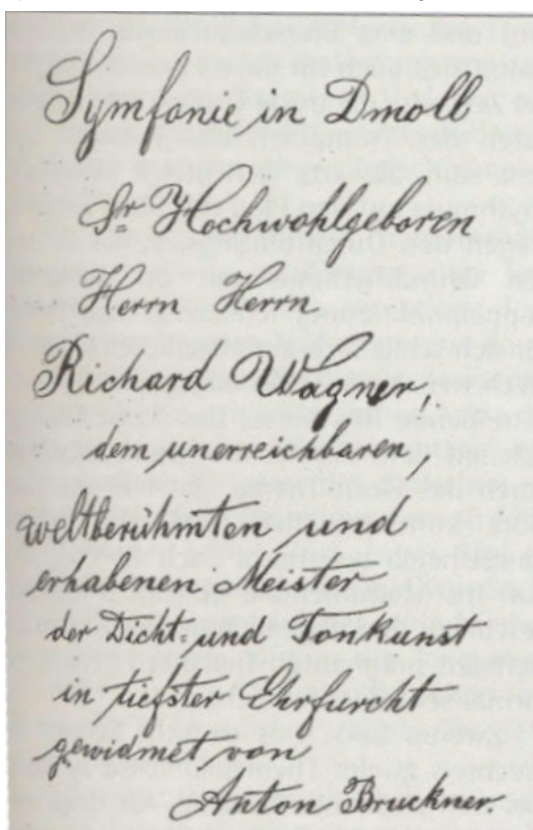 Symfonie in Dmoll
Sr Hochwohlgeboren
Herrn Herrn
Richard Wagner,
dem unerreichbaren,
weltberühmten und
erhabenen Meister
der Dicht- und Tonkunst
in tiefster Ehrfurcht
gewidmet von
Anton Bruckner.